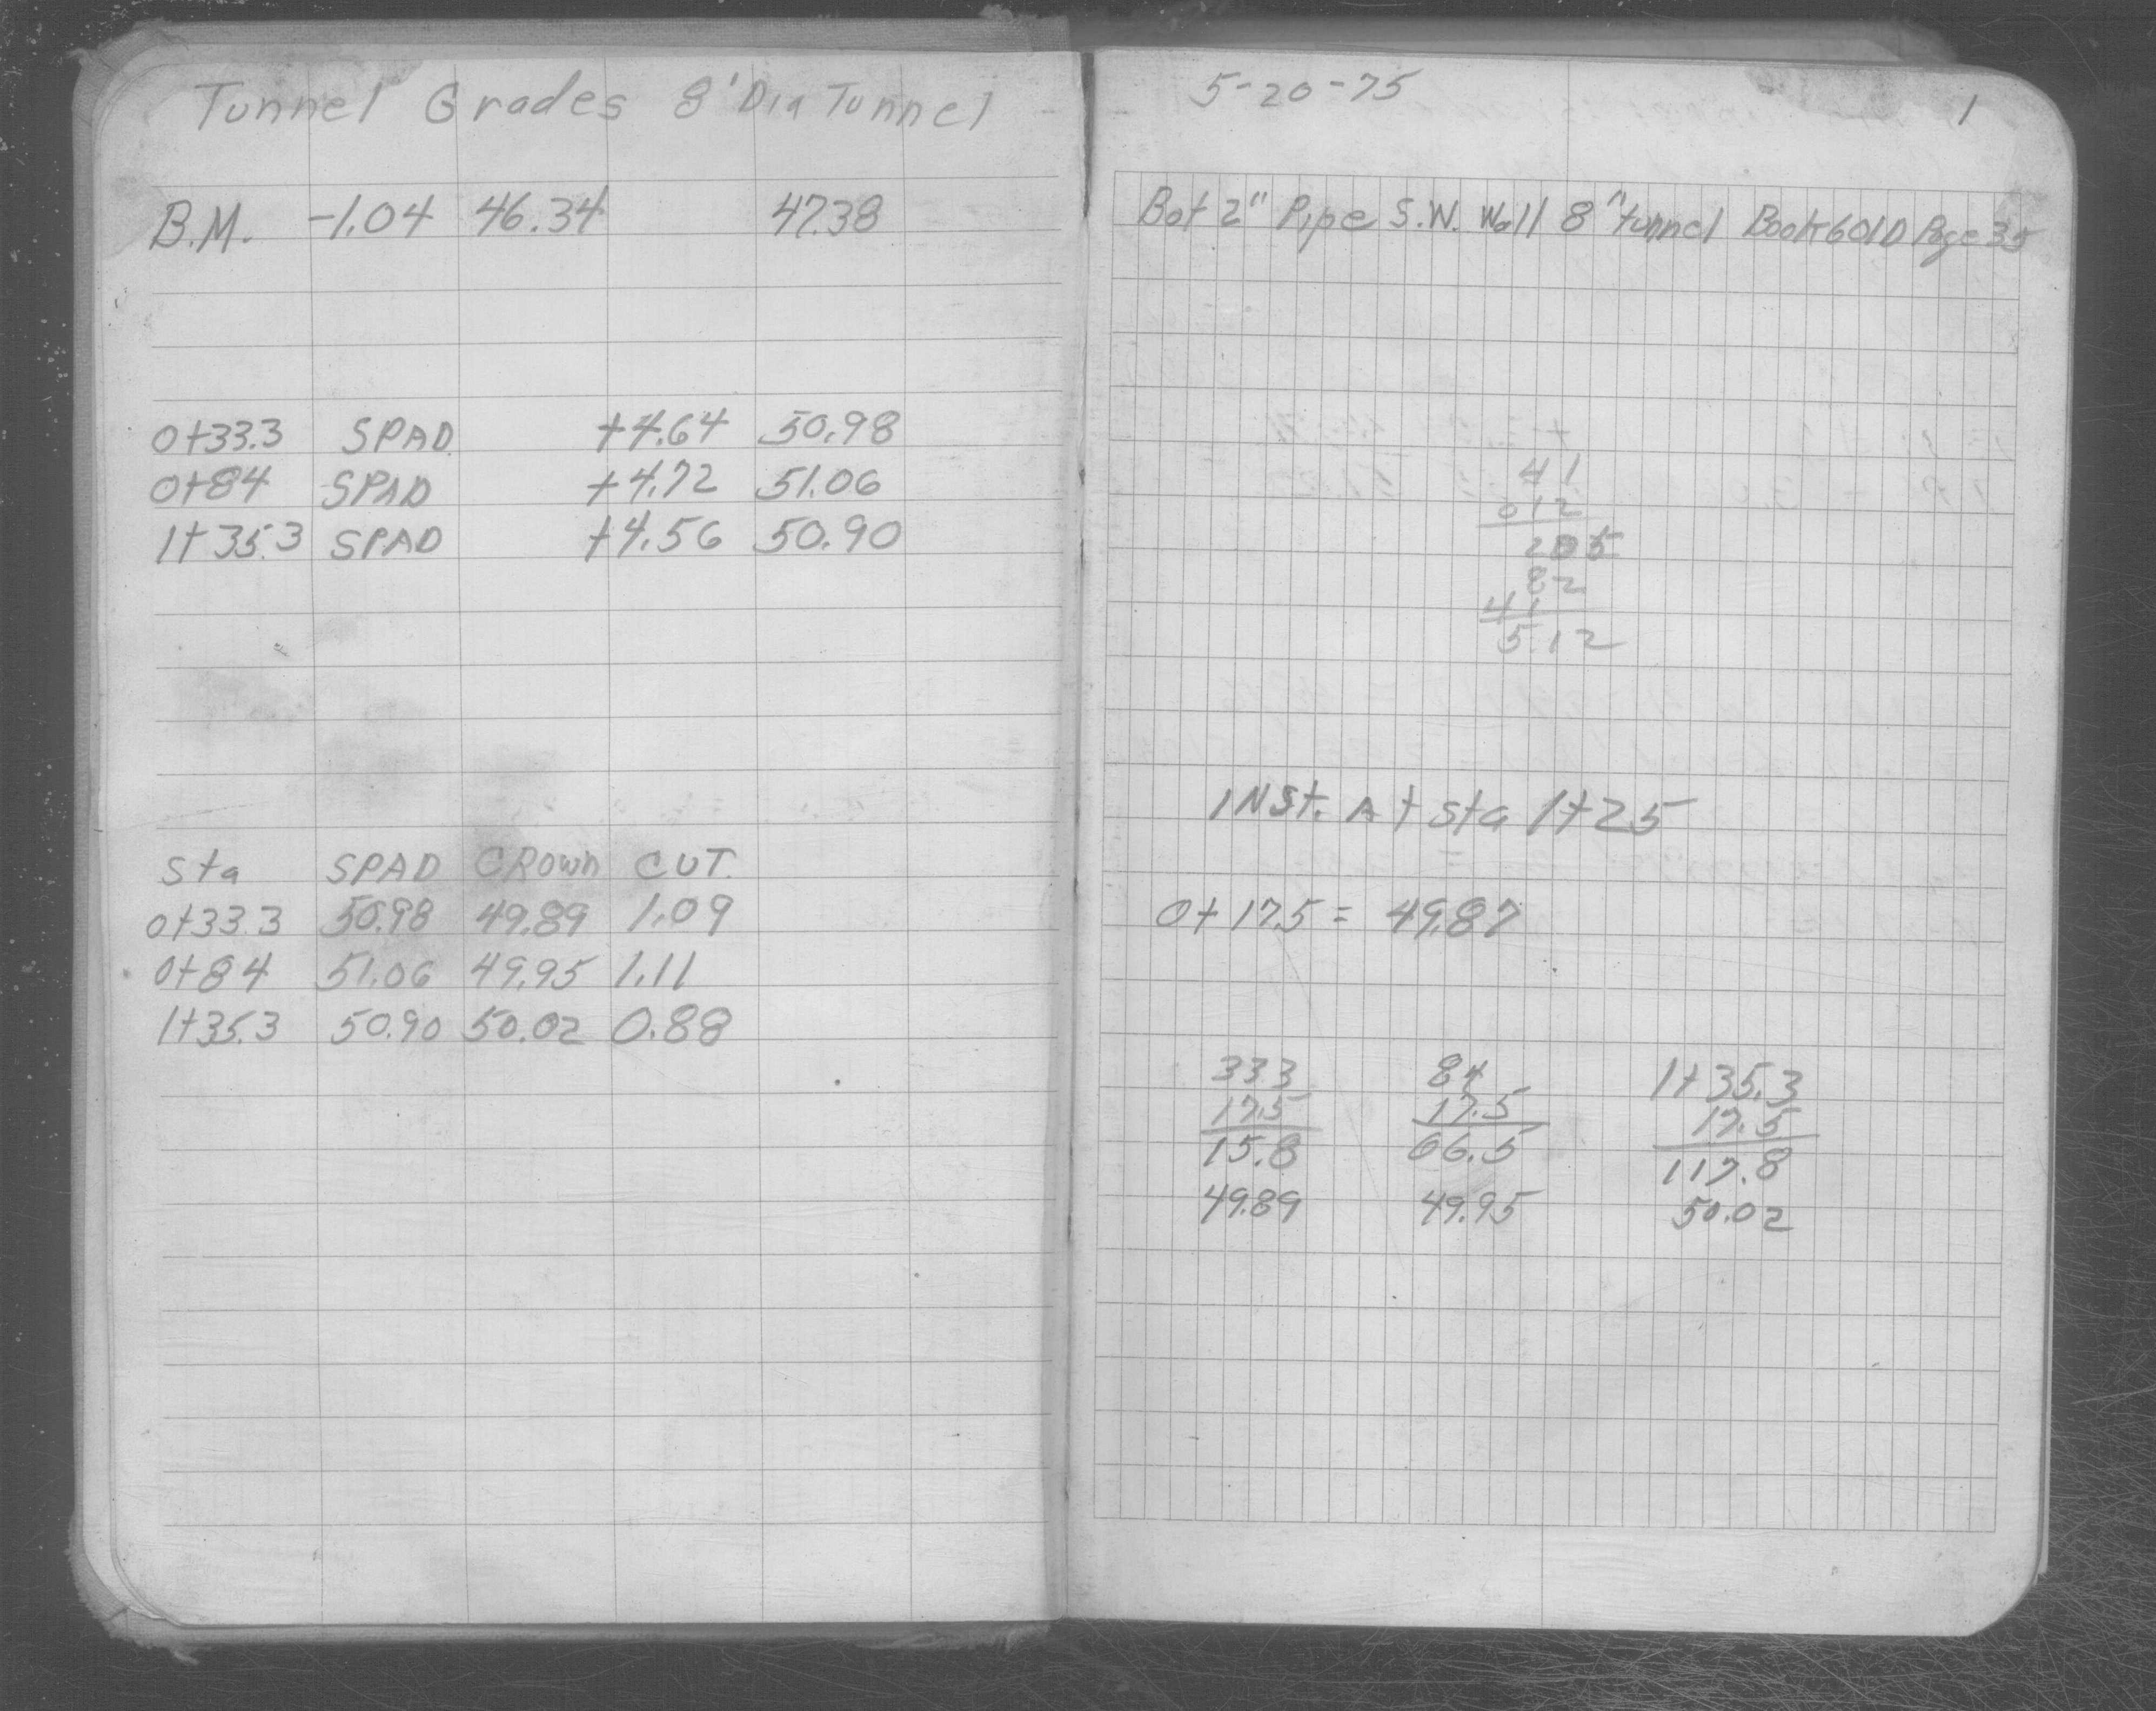 Tunnel Grades 8' Dia Tunnel
B.M. -1.04 46.34 47.38
0+33.3 SPAD +4.64 50.98
0+84 SPAD +4.72 51.06
1+35.3 SPAD +4.56 50.90
Sta SPAD CROWN CUT.
0+33.3 50.98 49.89 1.09
0+84 51.06 49.95 1.11
1+35.3 50.90 50.02 0.88
5-20-75
1
Bot 2" Pipe S.W. Wall 8" tunnel Book 601D Page 35
41
012
205
82
41
5.12
INSt. At Sta 1+25
0+17.5 = 49.87
333 84 1+35.3
17.5 17.5 17.5
15.8 66.5 117.8
49.89 49.95 50.02